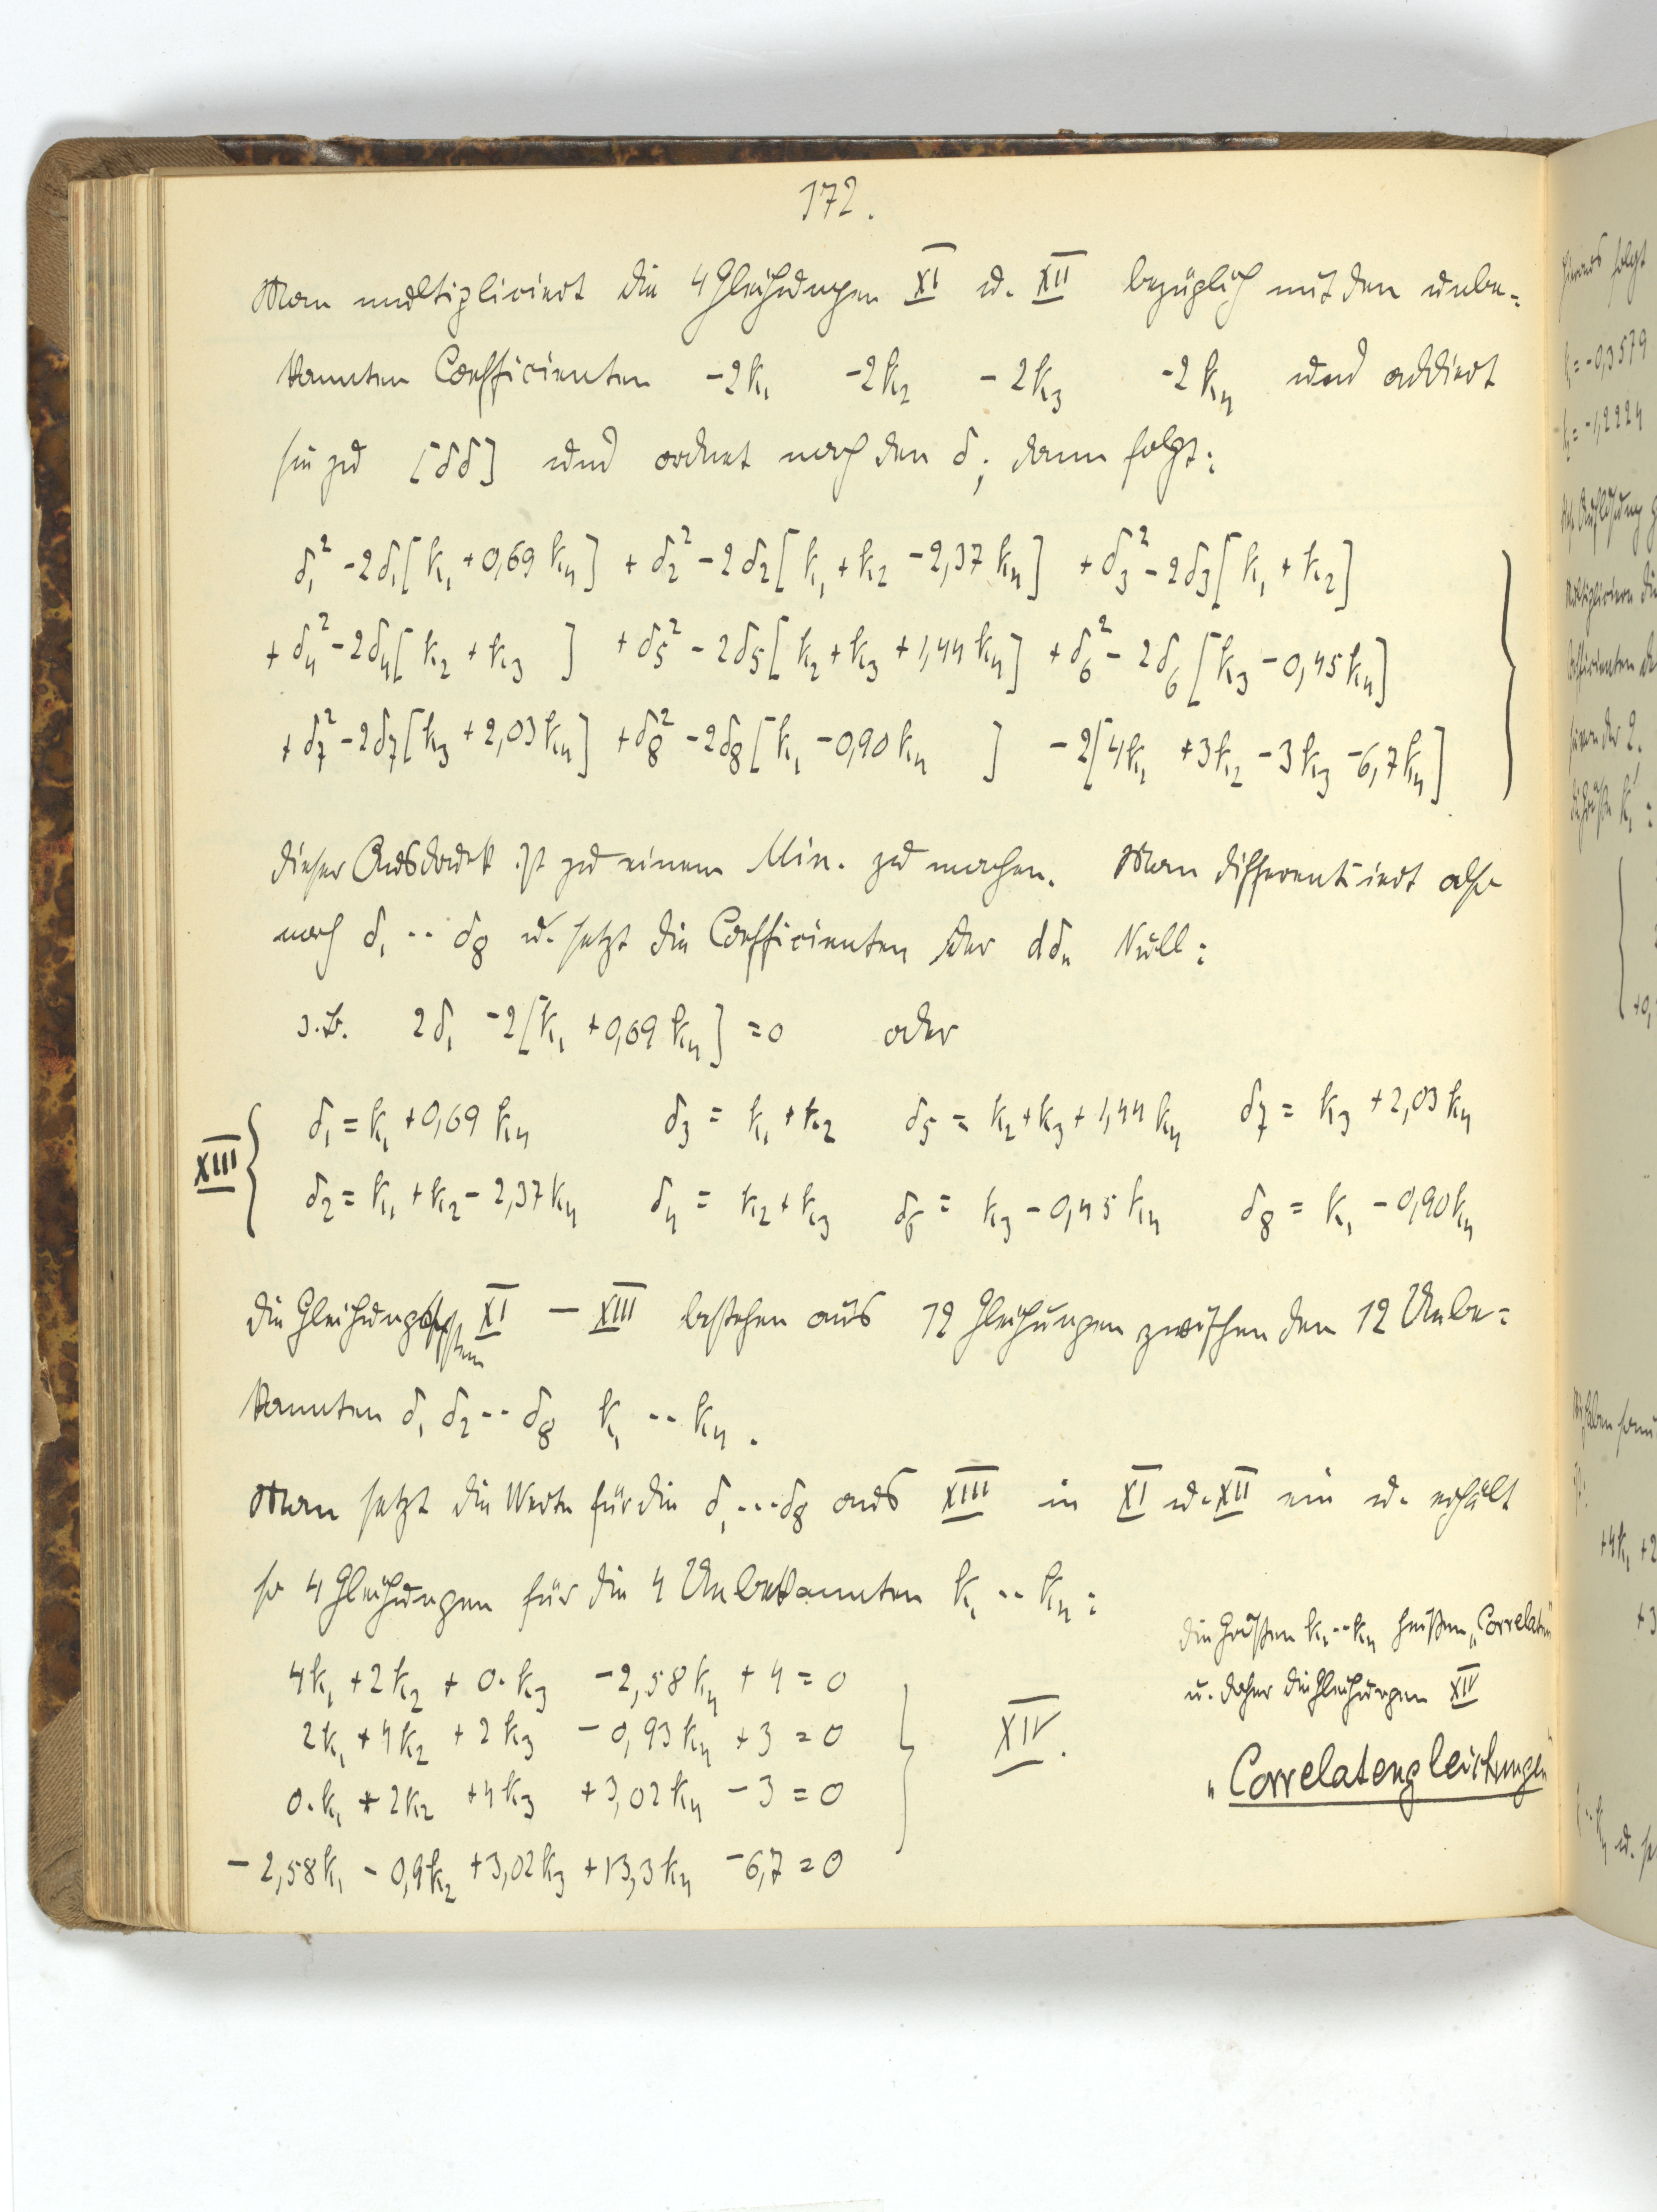 172.
Man multipliciert die 4 Gleichungen XI u. XII bezüglich mit den unbe=
kannten Coefficienten -2k₁ -2k₂ -2k₃ -2k₄ und addiert
sie zu [δδ] und ordnet nach den δ; dann folgt:
δ₁² -2δ₁[k₁ +0,69 k₄] + δ₂² -2δ₂[k₁ +k₂ -2,37k₄] + δ₃² -2δ₃[k₁ + k₂]
+ δ₄² -2δ₄[k₂ + k₃ ] + δ₅² -2δ₅[k₂ + k₃ + 1,44 k₄] + δ₆² - 2δ₆[k₃ -0,45k₄]
+ δ₇² -2δ₇[k₃ +2,03k₄] + δ₈² -2δ₈[k₁ -0,90k₄ ] -2[4k₁ +3k₂ -3k₃ -6,7k₄]
dieser Ausdruck ist zu einem Min. zu machen. Man differentiiert also
nach δ₁ -- δ₈ u. setzt die Coefficienten der dδₙ Null:
z.B. 2δ₁ -2[k₁ +0,69 k₄] =0 oder
XIII { δ₁ = k₁ +0,69 k₄ δ₃ = k₁ + k₂ δ₅ = k₂ + k₃ + 1,44 k₄ δ₇ = k₃ +2,03 k₄
δ₂ = k₁ + k₂ - 2,37k₄ δ₄ = k₂ + k₃ δ₆ = k₃ - 0,45 k₄ δ₈ = k₁ - 0,90k₄
die Gleichungssystem XI — XIII bestehen aus 12 Gleichungen zwischen den 12 Unbe=
kannten δ₁ δ₂ -- δ₈ k₁ -- k₄.
Man setzt die Werte für die δ₁ --- δ₈ aus XIII in XI u. XII ein u. erhält
so 4 Gleichungen für die 4 Unbekannten k₁ -- k₄:
4k₁ +2k₂ + 0.k₃ -2,58k₄ + 4 = 0
2k₁ +4k₂ +2k₃ -0,93k₄ +3 = 0
0.k₁ +2k₂ +4k₃ +3,02k₄ -3 = 0
-2,58k₁ -0,9k₂ +3,02k₃ +13,3k₄ -6,7 = 0
XIV.
die Größen k₁ -- k₄ heißen „Correlaten"
u. daher die Gleichungen XIV
„Correlatengleichungen"
hieraus folgt
= -0,3579
= -1,2224